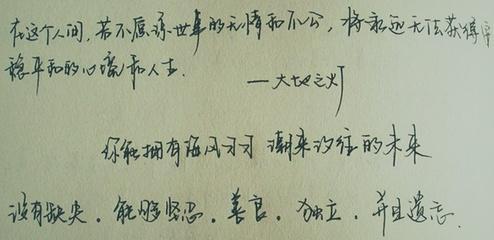 在这个人间，若不愿谅世事的无情和不公，将永远无法获得安
稳平和的心境和人生.
——大地之灯
你能拥有海风习习 潮来汐往的未来
没有缺失。能够坚忍。善良。独立。并且遗忘.